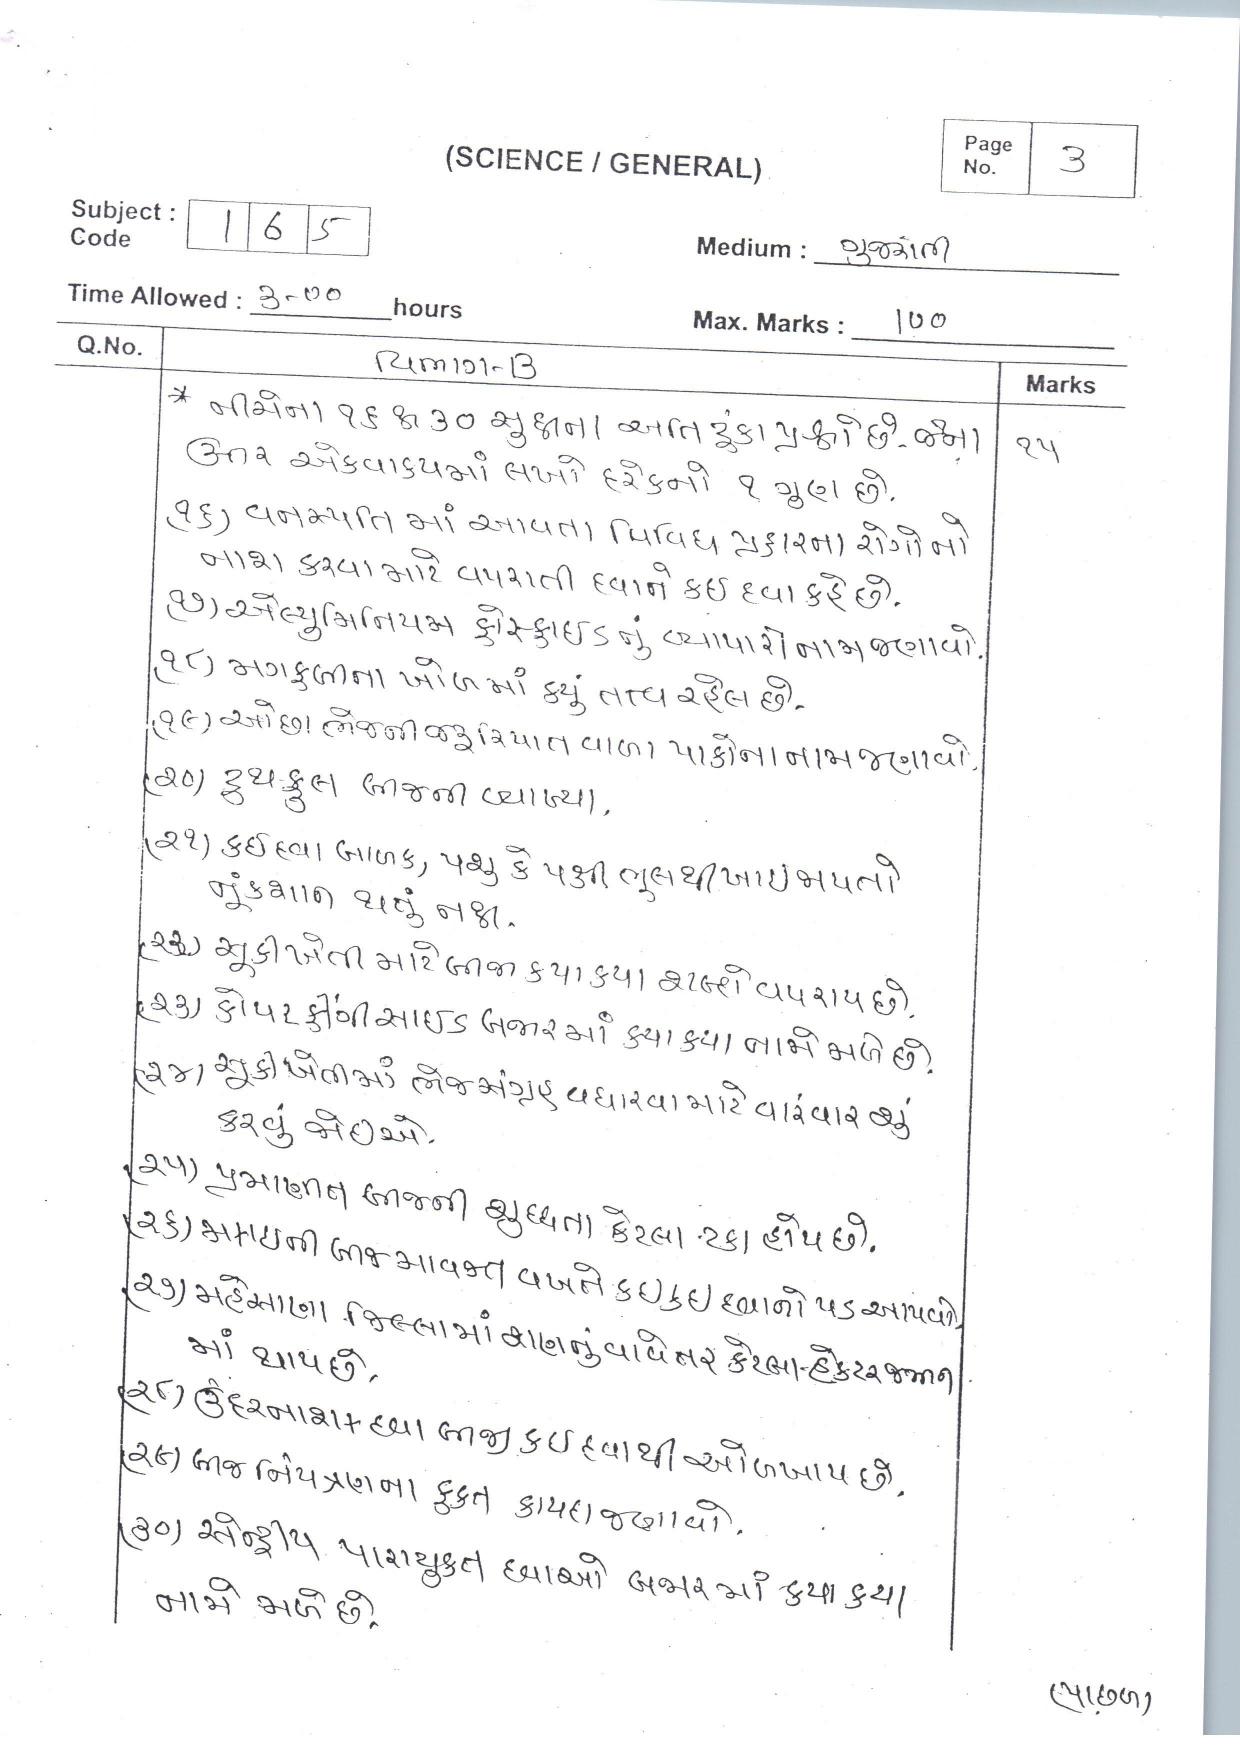 (SCIENCE / GENERAL)
Page No. 3
Subject : Code 1 6 5
Medium : ગુજરાતી
Time Allowed : 3-00 hours
Max. Marks : 100
Q.No.
વિભાગ-B
Marks
* નીચેના ૧૬ થી ૩૦ સુધીના અતિ ટૂંકા પ્રશ્નો છે. જેના ૧૫
ઉત્તર એકવાક્યમાં લખો દરેકનો ૧ ગુણ છે.
(૧૬) વનસ્પતિ માં આવતા વિવિધ પ્રકારના રોગોનો
નાશ કરવા માટે વપરાતી દવાને કઇ દવા કહે છે.
(૧૭) એલ્યુમિનિયમ ફોસ્ફાઇડનું વ્યાપારી નામ જણાવો.
(૧૮) મગફળીના ખોળમાં કયું તત્વ રહેલ છે.
(૧૯) ઓછા ભેજની જરૂરિયાત વાળા પાકોના નામ જણાવો.
(૨૦) ટ્રુથફુલ બીજની વ્યાખ્યા.
(૨૧) કઇ દવા બાળક, પશુ કે પક્ષી ભુલથી ખાઇ જાય તો
નૂકશાન થતું નથી.
(૨૨) સૂકી ખેતી માટે બીજા કયા કયા શબ્દો વપરાય છે.
(૨૩) કોપર ફોંજીસાઇડ બજારમાં કયા કયા નામે મળે છે.
(૨૪) સૂકી ખેતીમાં ભેજસંગ્રહ વધારવા માટે વારંવાર શું
કરવું જોઇએ.
(૨૫) પ્રમાણીત બીજની શુધ્ધતા કેટલા ટકા હોય છે.
(૨૬) મકાઇની બીજ માવજત વખતે કઇ કઇ દવાનો પડ આપવો.
(૨૭) મહેસાણા જિલ્લામાં શણનું વાવેતર કેટલા હેકટર જમીન
માં થાય છે.
(૨૮) ઉંદરનાશક દવા બીજી કઇ દવાથી ઓળખાય છે.
(૨૯) બીજ નિયંત્રણના ફકત કાયદા જણાવો.
(૩૦) સેન્દ્રીય પારાયુકત દવાઓ બજારમાં કયા કયા
નામે મળે છે.
(પાછળ)